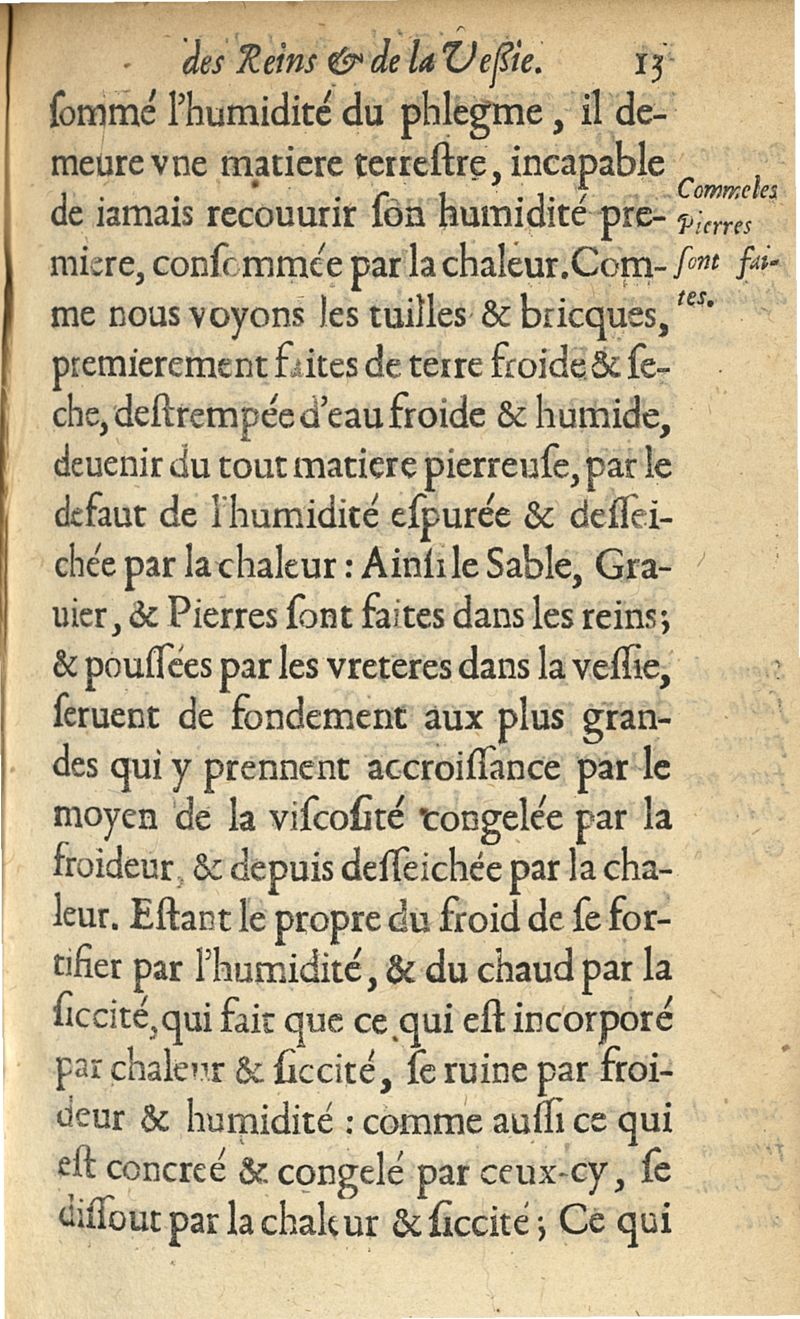 des Reins & de la Veſsie. 13
ſommé l'humidité du phlegme, il de-
meure vne matiere terreſtre, incapable
de iamais recouurir ſon humidité pre-
miere, conſommée par la chaleur. Com-
me nous voyons les tuilles & bricques,
premierement faites de terre froide & ſe-
che, deſtrempée d'eau froide & humide,
deuenir du tout matiere pierreuſe, par le
defaut de l'humidité eſpurée & deſſei-
chée par la chaleur : Ainſi le Sable, Gra-
uier, & Pierres ſont faites dans les reins;
& pouſſées par les vreteres dans la veſſie,
ſeruent de fondement aux plus gran-
des qui y prennent accroiſſance par le
moyen de la viſcoſité congelée par la
froideur, & depuis deſſeichée par la cha-
leur. Eſtant le propre du froid de ſe for-
tifier par l'humidité, & du chaud par la
ſiccité, qui fait que ce qui eſt incorporé
par chaleur & ſiccité, ſe ruine par froi-
deur & humidité : comme auſſi ce qui
eſt concreé & congelé par ceux-cy, ſe
diſſout par la chaleur & ſiccité; Ce qui
Comme les
Pierres
ſont fai-
tes.